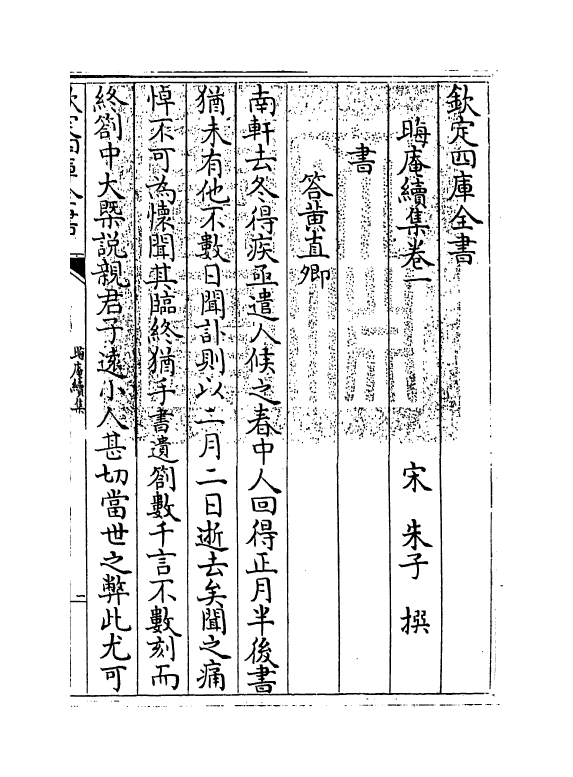 欽定四庫全書
晦庵續集卷一
宋 朱子 撰
書
答黄直卿
南軒去冬得疾亟遣人候之春中人回得正月半後書
猶未有他不數日聞訃則以二月二日逝去矣聞之痛
悼不可為懷聞其臨終猶手書遺劄數千言不數刻而
終劄中大槩説親君子遠小人甚切當世之弊此尤可
欽定四庫全書
晦庵續集
一